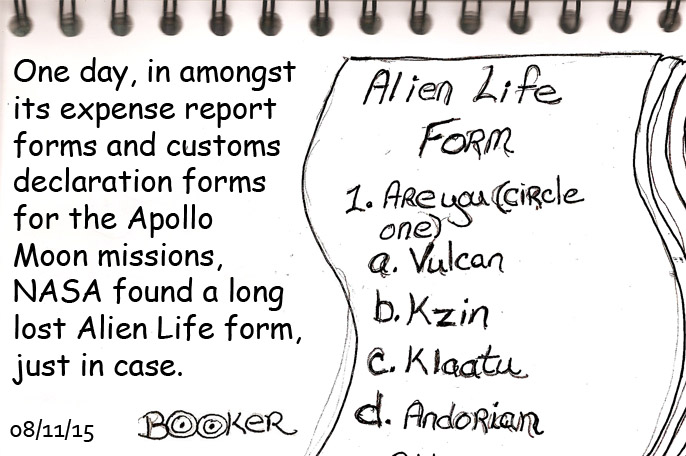 One day, in amongst
its expense report
forms and customs
declaration forms
for the Apollo
Moon missions,
NASA found a long
lost Alien Life form,
just in case.
08/11/15
BOOKER
Alien Life
FORM
1. Are you (circle
one)
a. Vulcan
b. Kzin
c. Klaatu
d. Andorian